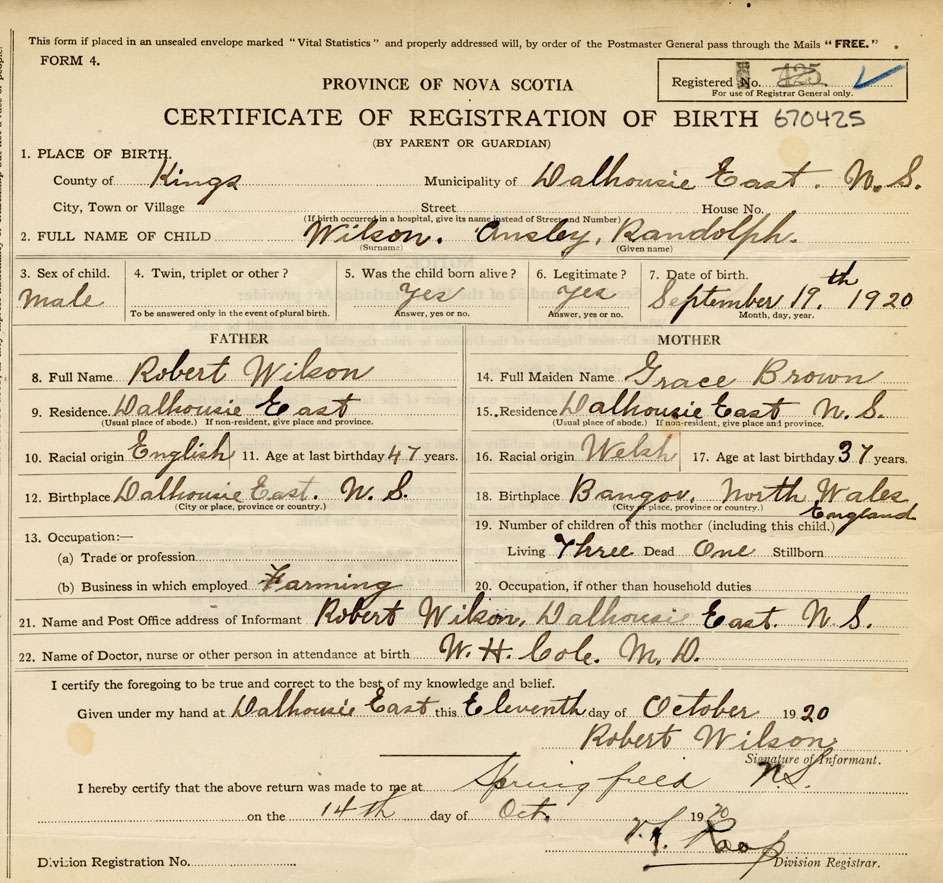 This form if placed in an unsealed envelope marked "Vital Statistics" and properly addressed will, by order of the Postmaster General pass through the Mails "FREE."
FORM 4.
Registered No. 425
For use of Registrar General only.
PROVINCE OF NOVA SCOTIA
CERTIFICATE OF REGISTRATION OF BIRTH 670425
(BY PARENT OR GUARDIAN)
1. PLACE OF BIRTH.
County of Kings Municipality of Dalhousie East. N. S.
City, Town or Village Street House No.
(If birth occurred in a hospital, give its name instead of Street and Number)
2. FULL NAME OF CHILD Wilson. Ansley, Randolph.
(Surname) (Given name)
3. Sex of child. 4. Twin, triplet or other? 5. Was the child born alive? 6. Legitimate? 7. Date of birth.
Male Yes Yes September 19th. 1920
To be answered only in the event of plural birth. Answer, yes or no. Answer, yes or no. Month, day, year.
FATHER MOTHER
8. Full Name Robert Wilson 14. Full Maiden Name Grace Brown
9. Residence. Dalhousie East 15. Residence Dalhousie East N. S.
(Usual place of abode.) If non-resident, give place and province. (Usual place of abode.) If non-resident, give place and province.
10. Racial origin English 11. Age at last birthday 47 years. 16. Racial origin Welsh 17. Age at last birthday 37 years.
12. Birthplace Dalhousie East. N. S. 18. Birthplace Bangor, North Wales
(City or place, province or country.) (City or place, province or country.) England
19. Number of children of this mother (including this child.)
13. Occupation:—
Living Three Dead One Stillborn
(a) Trade or profession
(b) Business in which employed Farming 20. Occupation, if other than household duties
21. Name and Post Office address of Informant Robert Wilson, Dalhousie East. N. S.
22. Name of Doctor, nurse or other person in attendance at birth W. H. Cole. M. D.
I certify the foregoing to be true and correct to the best of my knowledge and belief.
Given under my hand at Dalhousie East this Eleventh day of October 1920
Robert Wilson
Signature of Informant.
I hereby certify that the above return was made to me at Springfield N.S.
on the 14th day of Oct. 1920
Roop
Division Registration No. Division Registrar.